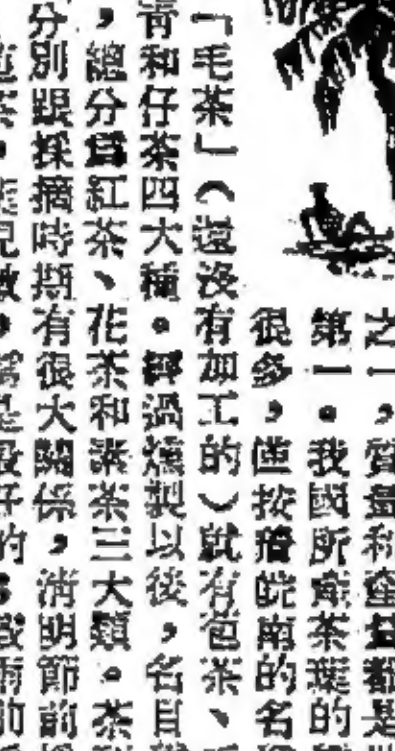 之一，質量和產量都是
第一。我國所產茶葉的
很多，僅按着皖南的名
「毛茶」（還沒有加工的）就有苞茶、
青和仔茶四大種。經過燻製以後，名目
，總分爲紅茶、花茶和素茶三大類。茶
分別跟採摘時期有很大關係，清明節前